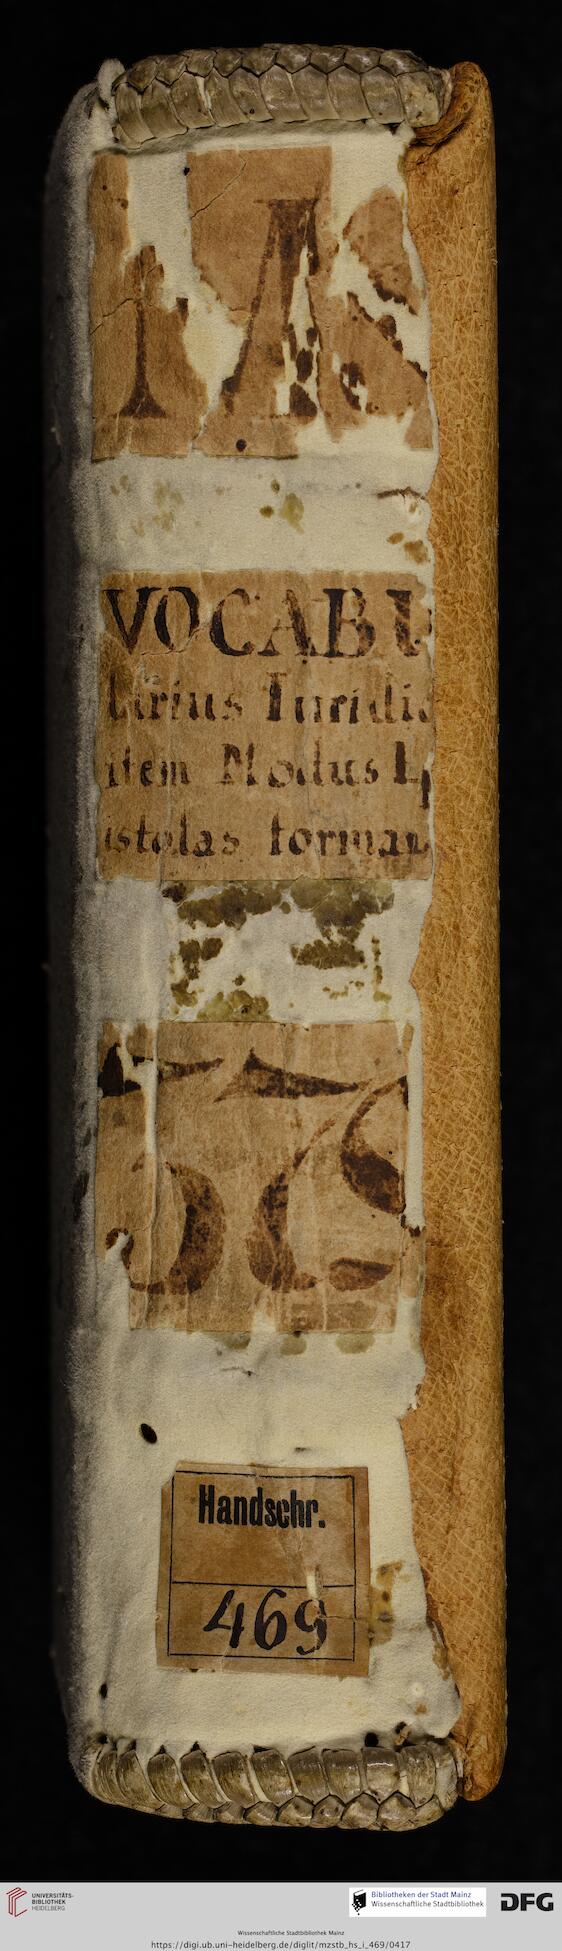 VOCABU
larius Iuridic
item Modus Ep
istolas forman
Handschr.
469
UNIVERSITÄTS-
BIBLIOTHEK
HEIDELBERG
Bibliotheken der Stadt Mainz
Wissenschaftliche Stadtbibliothek
DFG
Wissenschaftliche Stadtbibliothek Mainz
https://digi.ub.uni-heidelberg.de/diglit/mzstb_hs_i_469/0417